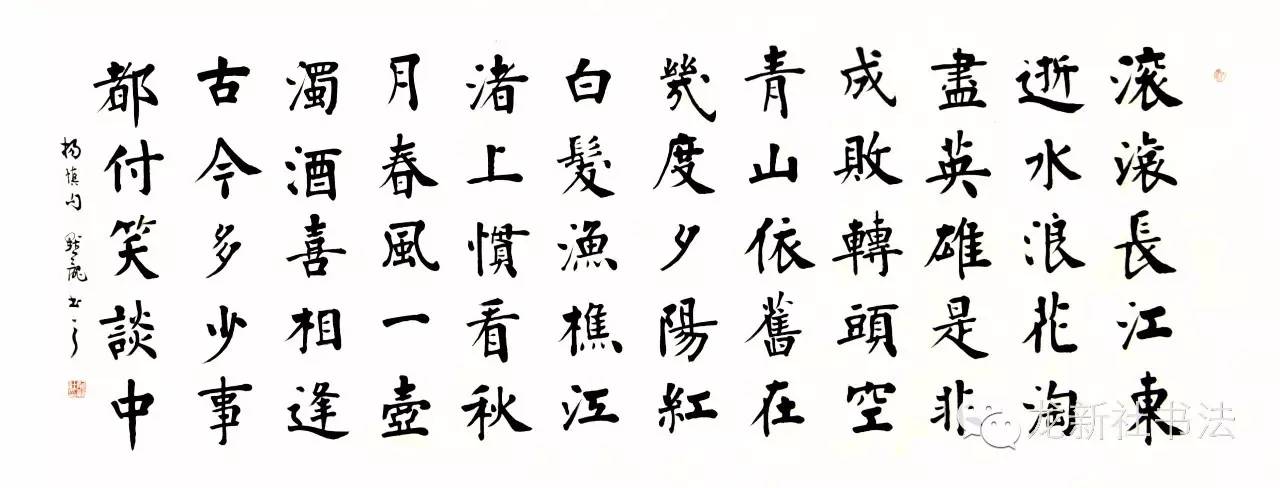 滚滚長江東
逝水浪花淘
盡英雄是非
成敗轉頭空
青山依舊在
幾度夕陽紅
白髮漁樵江
渚上慣看秋
月春風一壺
濁酒喜相逢
古今多少事
都付笑談中
楊慎句
龙新社书法